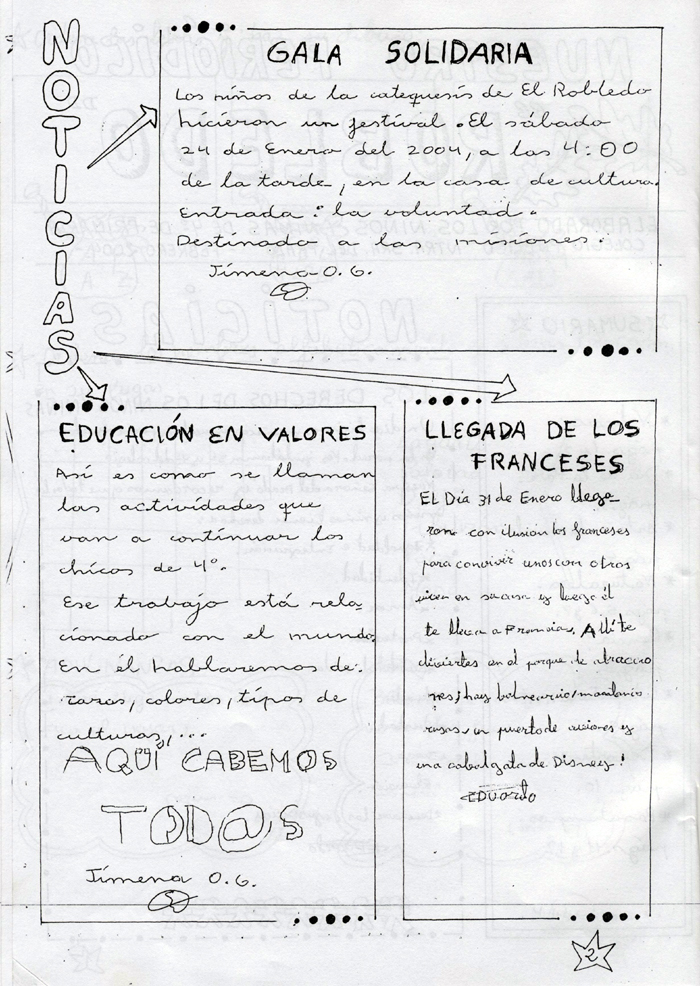 NOTICIAS
GALA SOLIDARIA
Los niños de la catequesis de El Robledo
hicieron un festival. El sábado
24 de Enero del 2004, a las 4:00
de la tarde, en la casa de cultura.
Entrada: la voluntad.
Destinado a las misiones.
Jimena O.G.
EDUCACIÓN EN VALORES
Así es como se llaman
las actividades que
van a continuar los
chicos de 4º.
Ese trabajo está rela-
cionado con el mundo.
En él hablaremos de:
razas, colores, tipos de
culturas, ...
AQUÍ CABEMOS
TOD@S
Jimena O.G.
LLEGADA DE LOS
FRANCESES
EL Día 31 de Enero llega-
ron con ilusión los franceses
para convivir unos con otros
viven en su casa y luego él
te lleva a Francia. Allí te
diviertes en el parque de atraccio
nes, hay balneario, montañas
rusas, un puerto de aviones y
una cabalgata de Disney!
EDUARDO
2